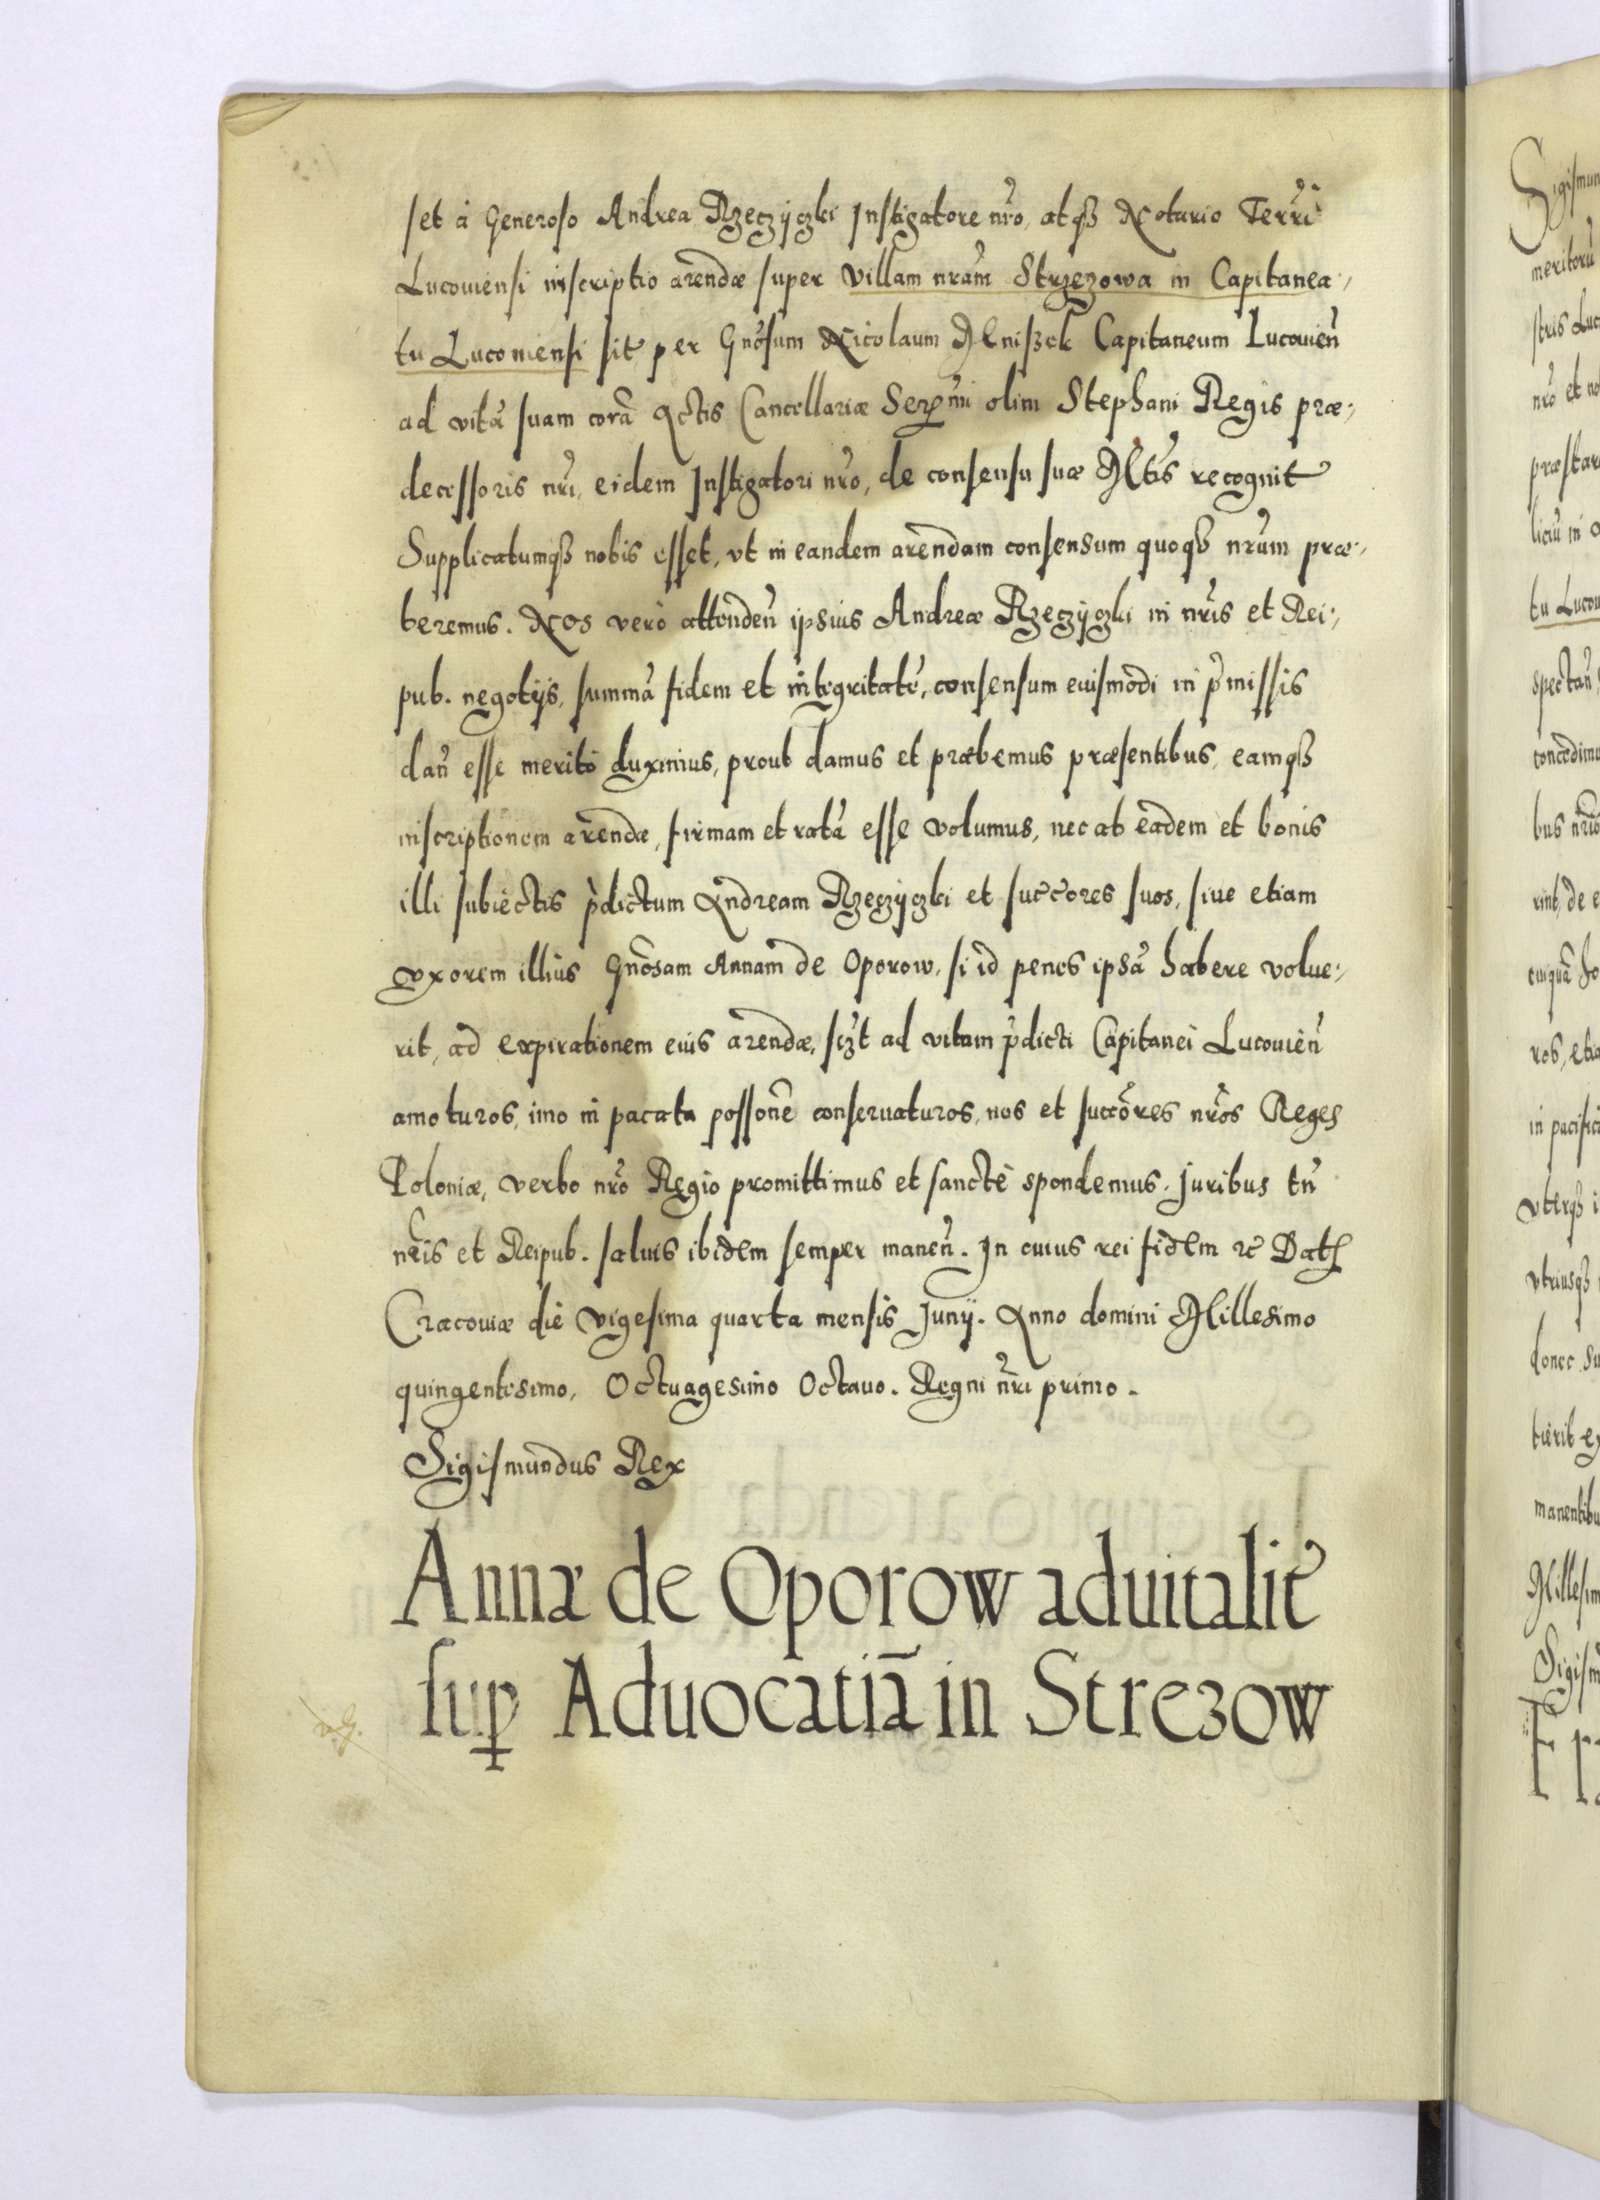 set à Generoso Andrea Rzeczÿczki Instigatore nr̃o, atqꝫ Notario Terrĩ
Lucouiensi inscriptio arendæ super villam nram̃ Strzezowa in Capitanea-
tu Lucouiensi sit per Gnõsum Nicolaum Mniszek Capitaneum Lucouień
ad vitã suam corã Actis Cancellariæ Serꝑñmi olim Stephani Regis præ-
decessoris nr̃i, eidem Instigatori nr̃o, de consensu suæ Mtĩs recognit
Supplicatumqꝫ nobis esset, vt in eandem arendam consensum quoqꝫ nrũm præ-
beremus. Nos verò attendeñ ipsius Andreæ Rzeczÿczki in nrĩs et Rei-
pub. negotijs, summã fidem et integritatẽ, consensum euismodi in p̃missis
dañ esse meritò duximus, prout damus et præbemus præsentibus, eamqꝫ
inscriptionem arendæ, firmam et ratã esse volumus, nec ab eadem et bonis
illi subiectis p̃dictum Andream Rzeczÿczki et succẽores suos, siue etiam
vxorem illius Gnõsam Annam de Oporow, si id penes ipsã habere volue-
rit, ad expirationem eius arendæ, siꝫt ad vitam p̃dicti Capitanei Lucouień
amoturos, imo in pacata possonẽ conseruaturos, nos et succõres nrõs Reges
Poloniæ, verbo nr̃o Regio promittimus et sanctè spondemus. Juribus tñ
nrĩs et Reipub. saluis ibidem semper maneñ. In cuius rei fidem ꝛc Datꝭ
Cracouiæ die vigesima quarta mensis Junÿ. Anno domini Millesimo
quingentesimo, Octuagesimo Octauo. Regni nr̃i primo.
Sigismundus Rex
Annæ de Oporow aduitalit̃
suꝑ Aduocatiã in Strezow